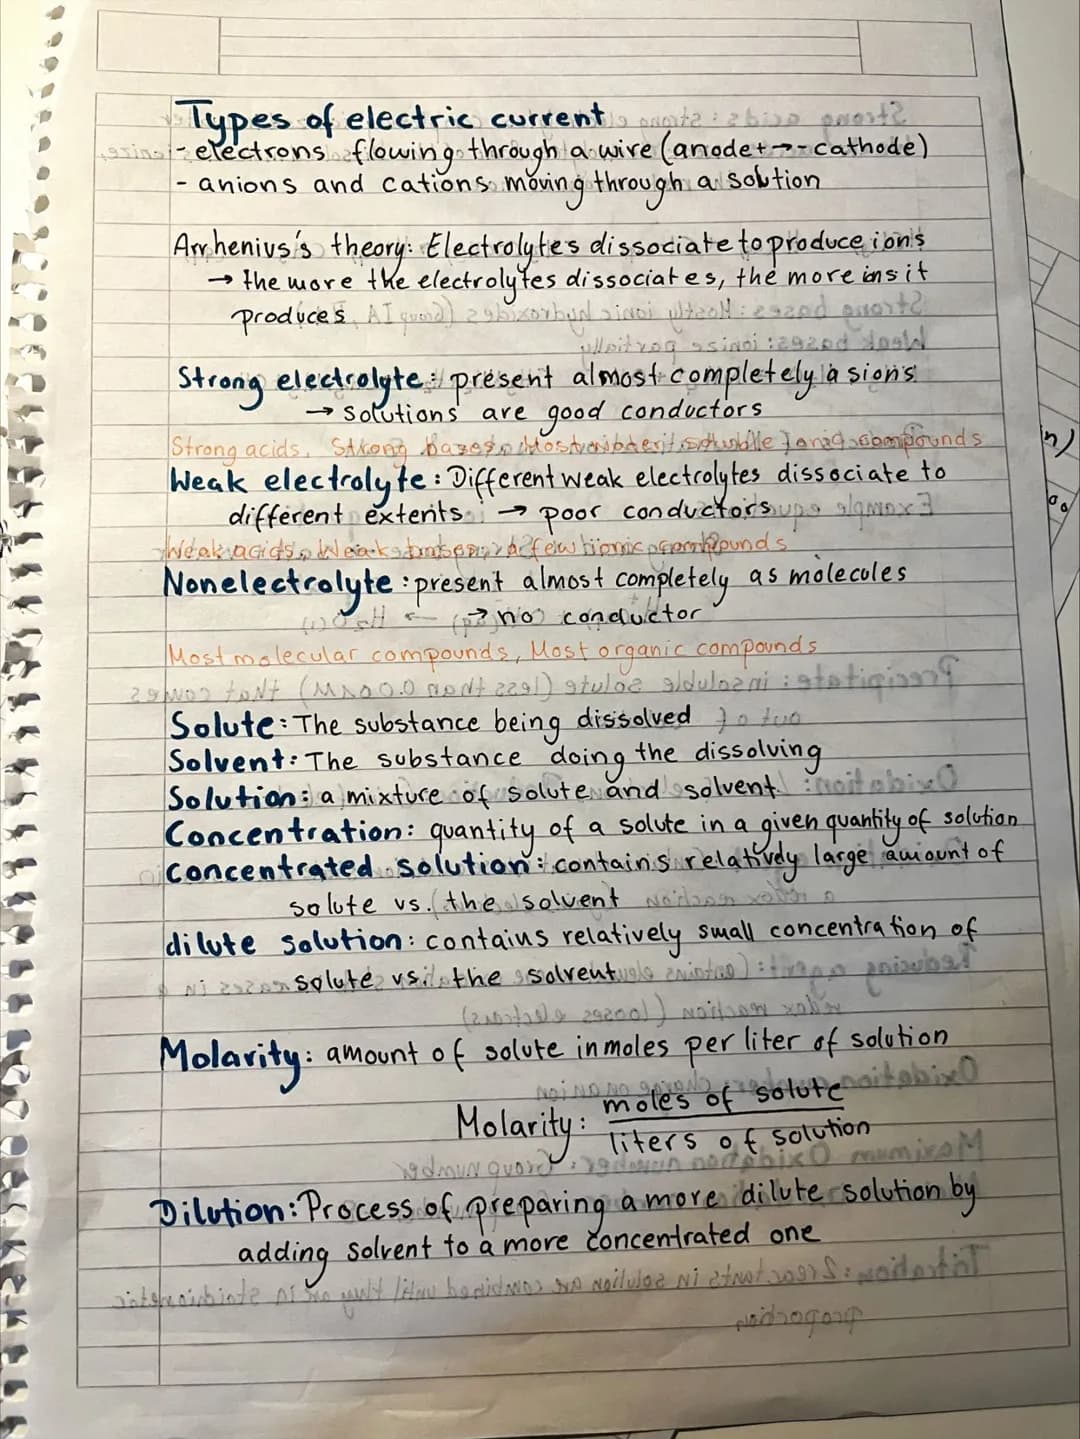 Types of electric current
- electrons flowing through a wire (anode+→- cathode)
- anions and cations moving through a solution
Arrhenius's theory: Electrolytes dissociate to produce ions
→ the more the electrolytes dissociates, the more ions it
produces
Strong electrolyte: present almost completely as ions
→ solutions are good conductors
Strong acids, Strong bases, Most water soluble ionic compounds
Weak electrolyte: Different weak electrolytes dissociate to
different extents → poor conductors
Weak acids, Weak bases, a few ionic compounds
Nonelectrolyte: present almost completely as molecules
→ no conductor
Most molecular compounds, Most organic compounds
Solute: The substance being dissolved
Solvent: The substance doing the dissolving
Solution: a mixture of solute and solvent
Concentration: quantity of a solute in a given quantity of solution
concentrated solution: contains relatively large amount of
solute vs. the solvent
dilute solution: contains relatively small concentration of
solute vs. the solvent
Molarity: amount of solute in moles per liter of solution
Molarity: moles of solute
liters of solution
Dilution: Process of preparing a more dilute solution by
adding solvent to a more concentrated one